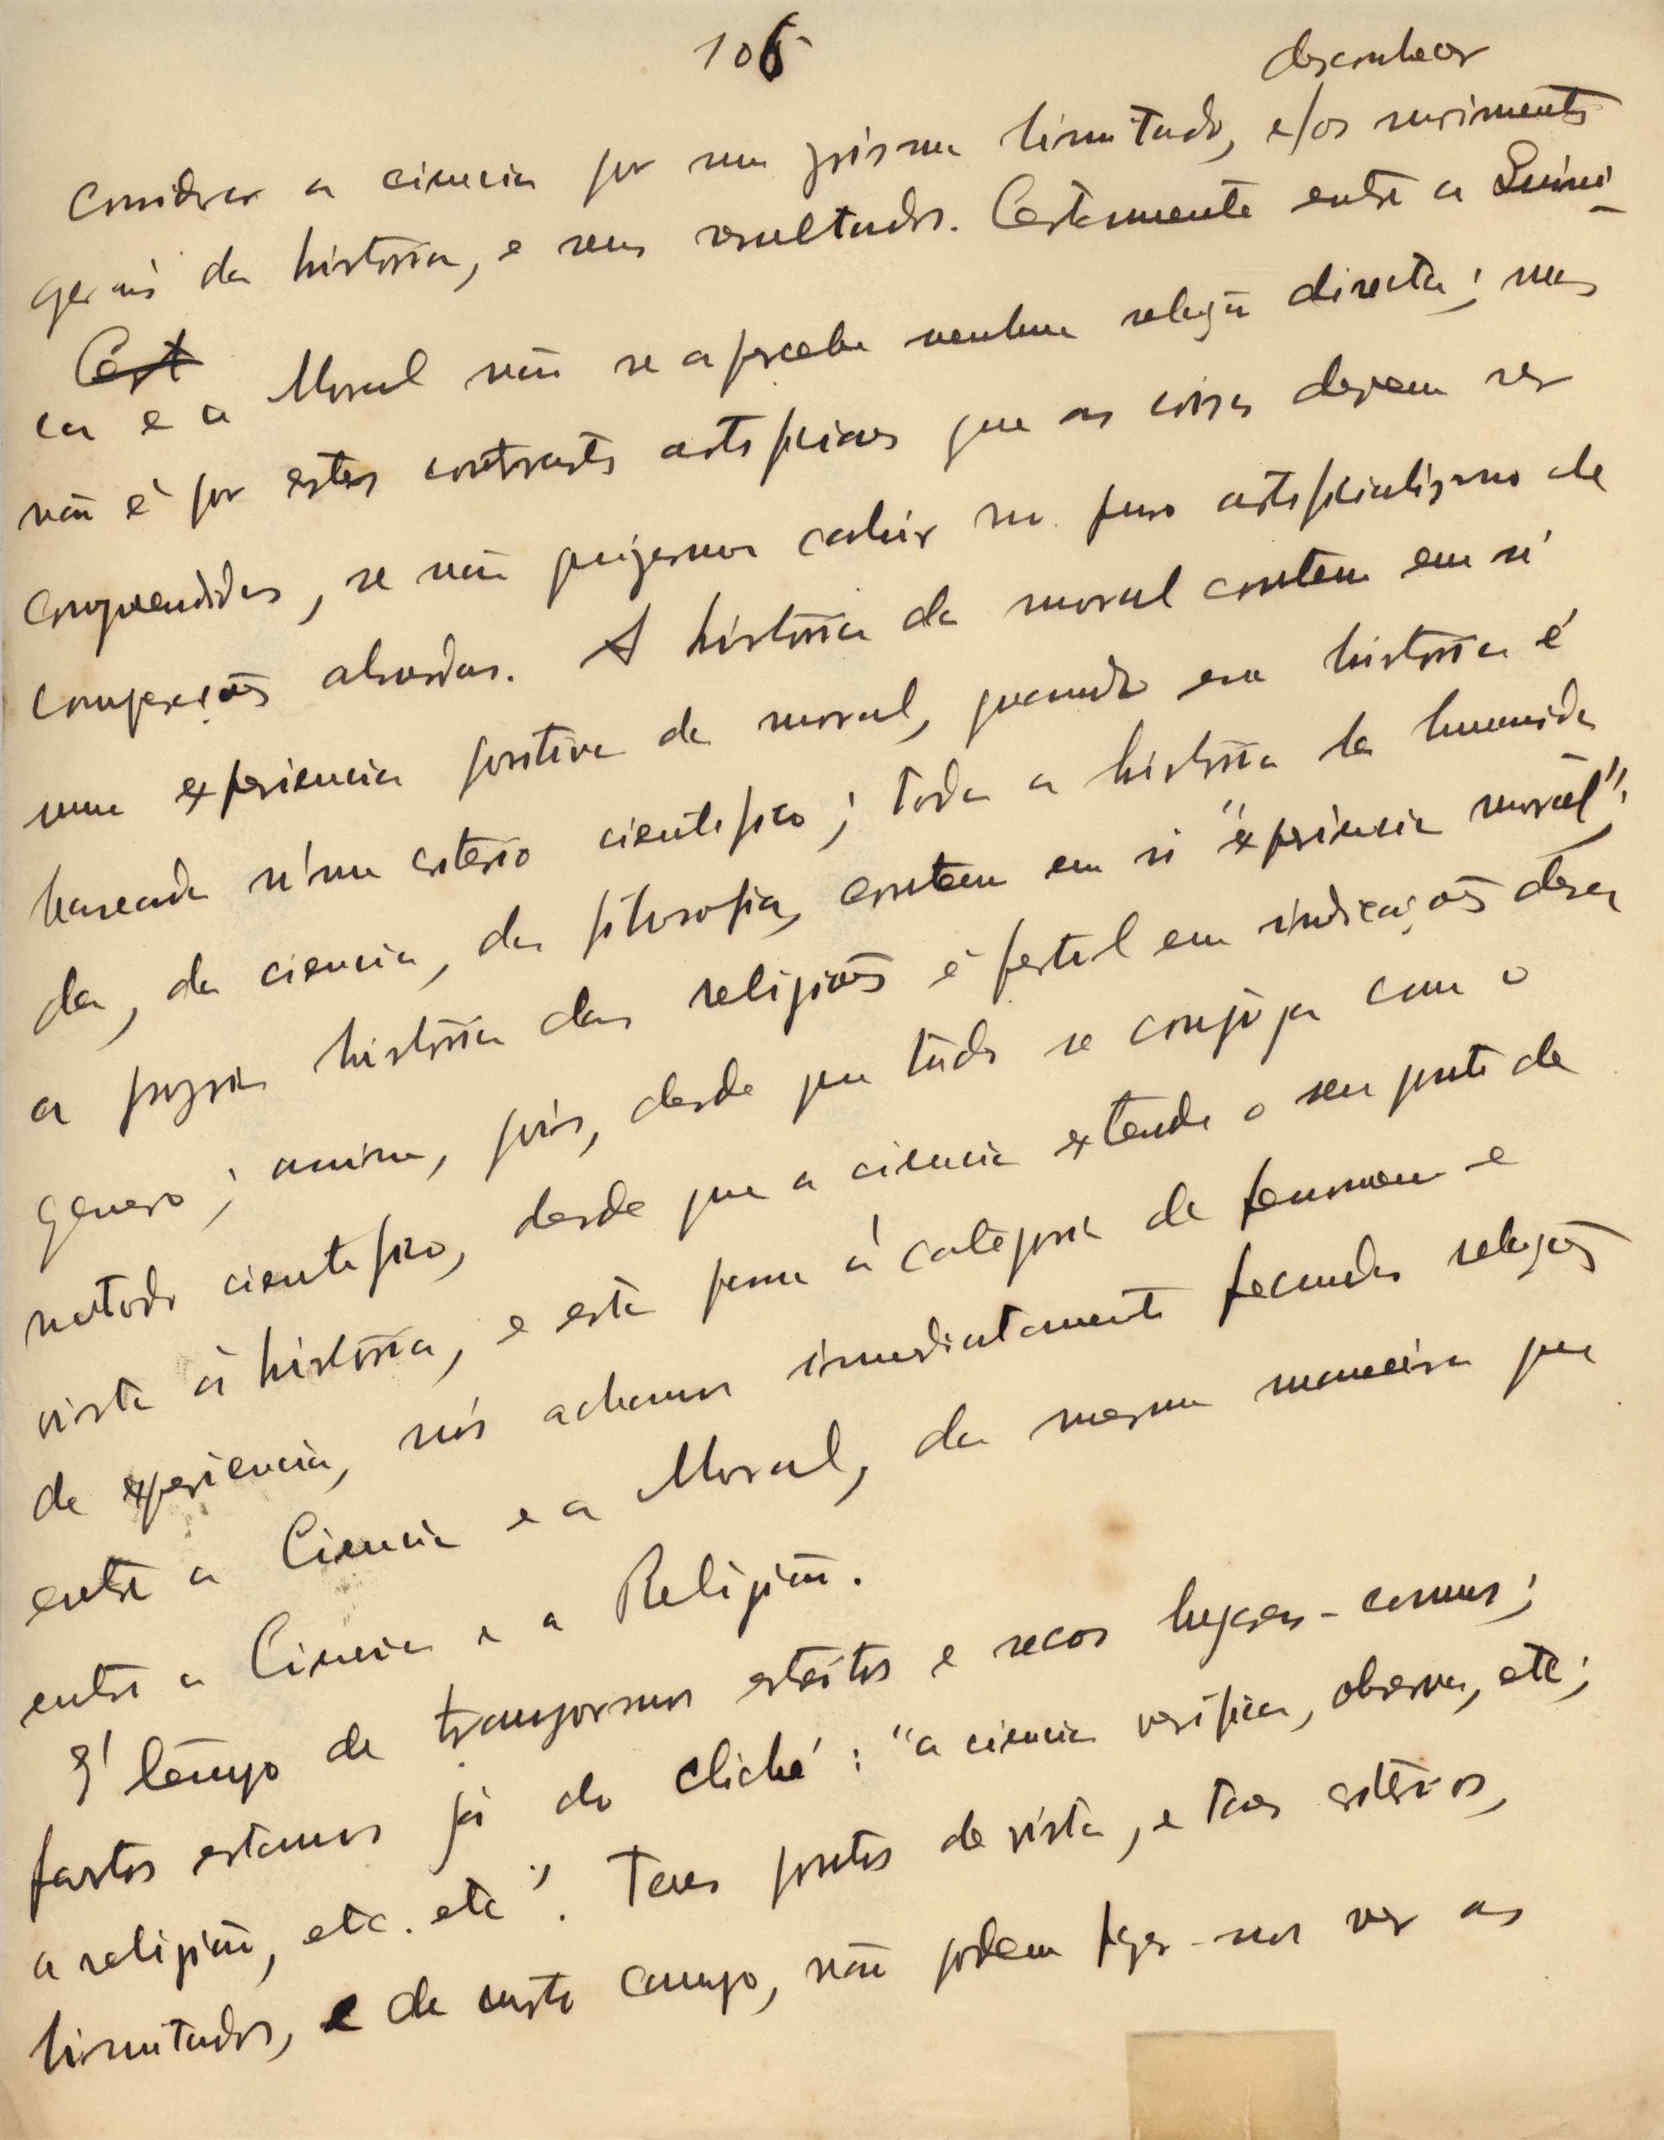 106
desconhecer
Considerar a ciencia por um prisma limitado, e/os movimentos
geraes da história, e seus resultados. Certamente entre a Quimi-
Cert
ca e a Moral não se apercebe nenhuma relação directa; mas
não é por estes contrastes artificiaes que as coisas devem ser
comprendidas, se não quizermos cahir no puro artificialismo de
comparações absurdas. A história da moral contem em si
uma experiencia positiva da moral, quando essa história é
baseada n'um criterio cientifico; toda a história da humanida
de, da ciencia, da filosofia, contem em si "experiencia moral";
a propria história das religiões é fertil em indicações desse
genero; assim, pois, desde que tudo se conjuga com o
metodo cientifico, desde que a ciencia extende o seu ponto de
vista á história, e esta passa á categoria de fenomeno e
de experiencia, nós achamos immediatamente fecundas relações
entre a Ciencia e a Moral, da mesma maneira que
entre a Ciencia e a Religião.
E' tempo de transpormos estreitos e secos lugares-comuns;
fartos estamos já do cliché: "a ciencia verifica, observa, etc;
a religião, etc. etc". Taes pontos de vista, e taes criterios,
limitados, e de curto campo, não podem fazer-nos ver as